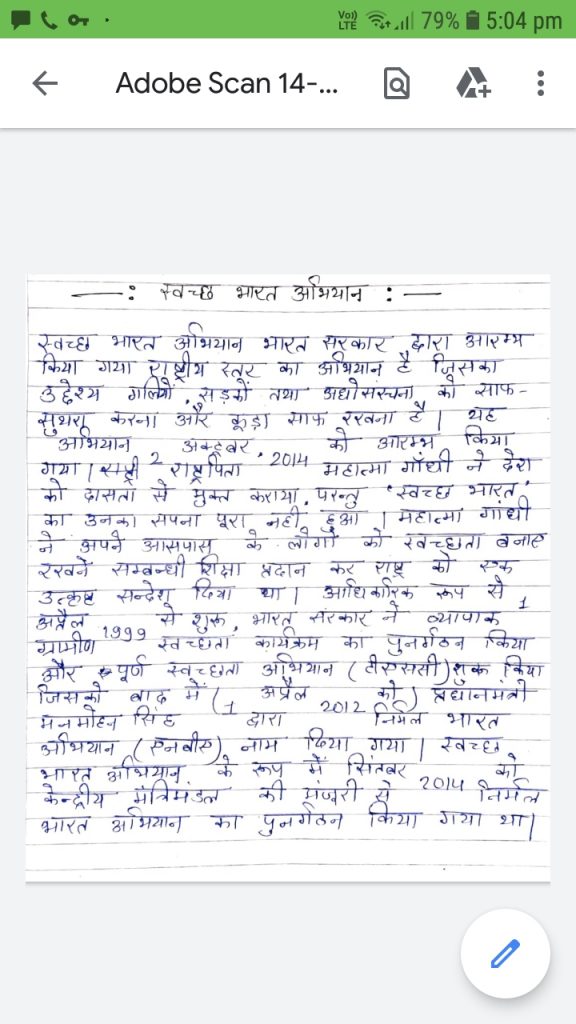 Vo)) LTE 79% 5:04 pm
Adobe Scan 14-...
—: स्वच्छ भारत अभियान :—
स्वच्छ भारत अभियान भारत सरकार द्वारा आरम्भ
किया गया राष्ट्रीय स्तर का अभियान है जिसका
उद्देश्य गलियों, सड़कों तथा अधोसंरचना को साफ-
सुथरा करना और कूड़ा साफ रखना है। यह
अभियान 2 अक्टूबर, 2014 को आरम्भ किया
गया। राष्ट्रपिता महात्मा गाँधी ने देश
को दासता से मुक्त कराया, परन्तु 'स्वच्छ भारत'
का उनका सपना पूरा नहीं हुआ। महात्मा गांधी
ने अपने आसपास के लोगों को स्वच्छता बनाए
रखने सम्बन्धी शिक्षा प्रदान कर राष्ट्र को एक
उत्कृष्ट सन्देश दिया था। आधिकारिक रूप से 1
अप्रैल 1999 से शुरू, भारत सरकार ने व्यापक
ग्रामीण स्वच्छता कार्यक्रम का पुनर्गठन किया
और पूर्ण स्वच्छता अभियान (टीएससी) शुरू किया
जिसको बाद में (1 अप्रैल 2012 को) प्रधानमंत्री
मनमोहन सिंह द्वारा निर्मल भारत
अभियान (एनबीए) नाम दिया गया। स्वच्छ
भारत अभियान के रूप में सितंबर 2014 को
केन्द्रीय मंत्रिमंडल की मंजूरी से निर्मल
भारत अभियान का पुनर्गठन किया गया था।